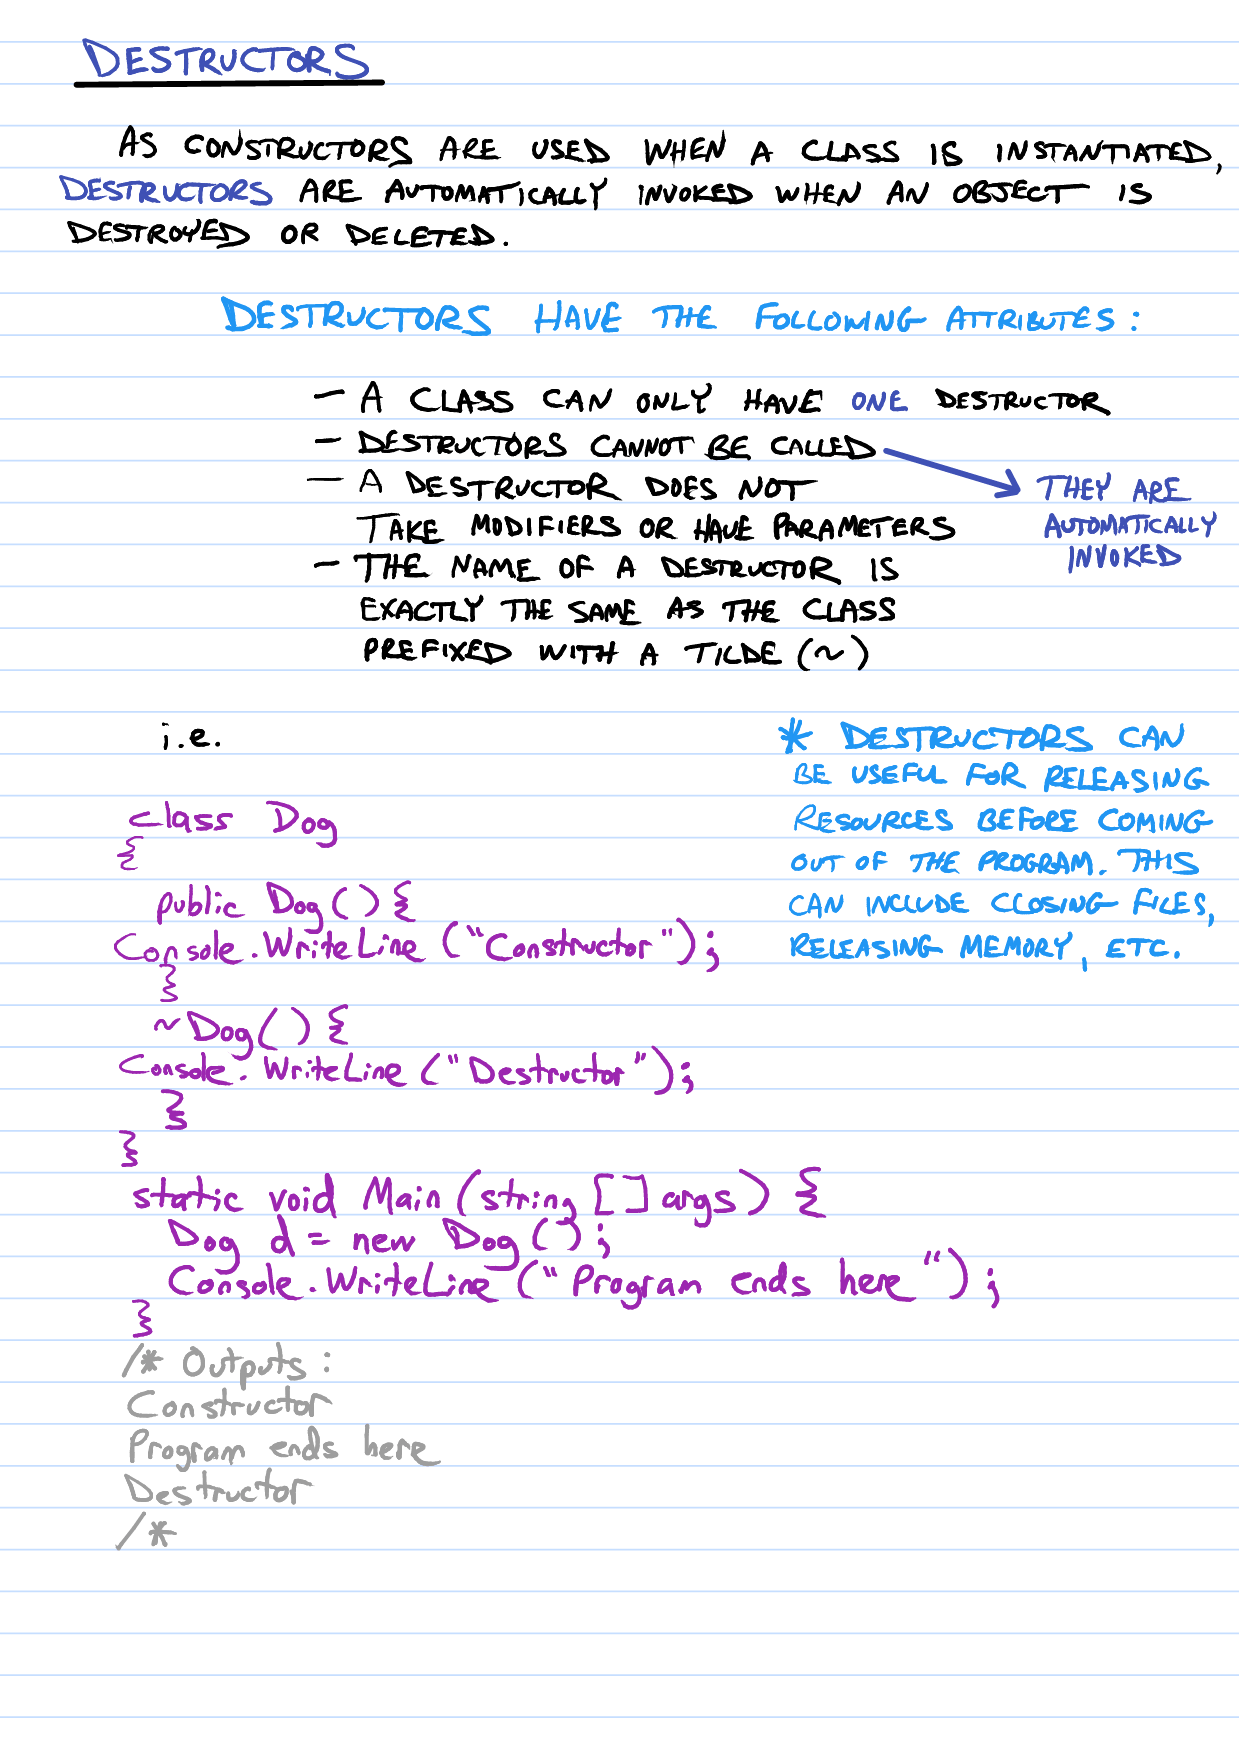 DESTRUCTORS
AS CONSTRUCTORS ARE USED WHEN A CLASS IS INSTANTIATED,
DESTRUCTORS ARE AUTOMATICALLY INVOKED WHEN AN OBJECT IS
DESTROYED OR DELETED.
DESTRUCTORS HAVE THE FOLLOWING ATTRIBUTES:
- A CLASS CAN ONLY HAVE ONE DESTRUCTOR
- DESTRUCTORS CANNOT BE CALLED
- A DESTRUCTOR DOES NOT
TAKE MODIFIERS OR HAVE PARAMETERS
- THE NAME OF A DESTRUCTOR IS
EXACTLY THE SAME AS THE CLASS
PREFIXED WITH A TILDE (~)
THEY ARE
AUTOMATICALLY
INVOKED
i.e.
class Dog
{
public Dog() {
Console.WriteLine("Constructor");
}
~Dog() {
Console.WriteLine("Destructor");
}
}
static void Main(string[] args) {
Dog d = new Dog();
Console.WriteLine("Program ends here");
}
/* Outputs:
Constructor
Program ends here
Destructor
/*
* DESTRUCTORS CAN
BE USEFUL FOR RELEASING
RESOURCES BEFORE COMING
OUT OF THE PROGRAM. THIS
CAN INCLUDE CLOSING FILES,
RELEASING MEMORY, ETC.